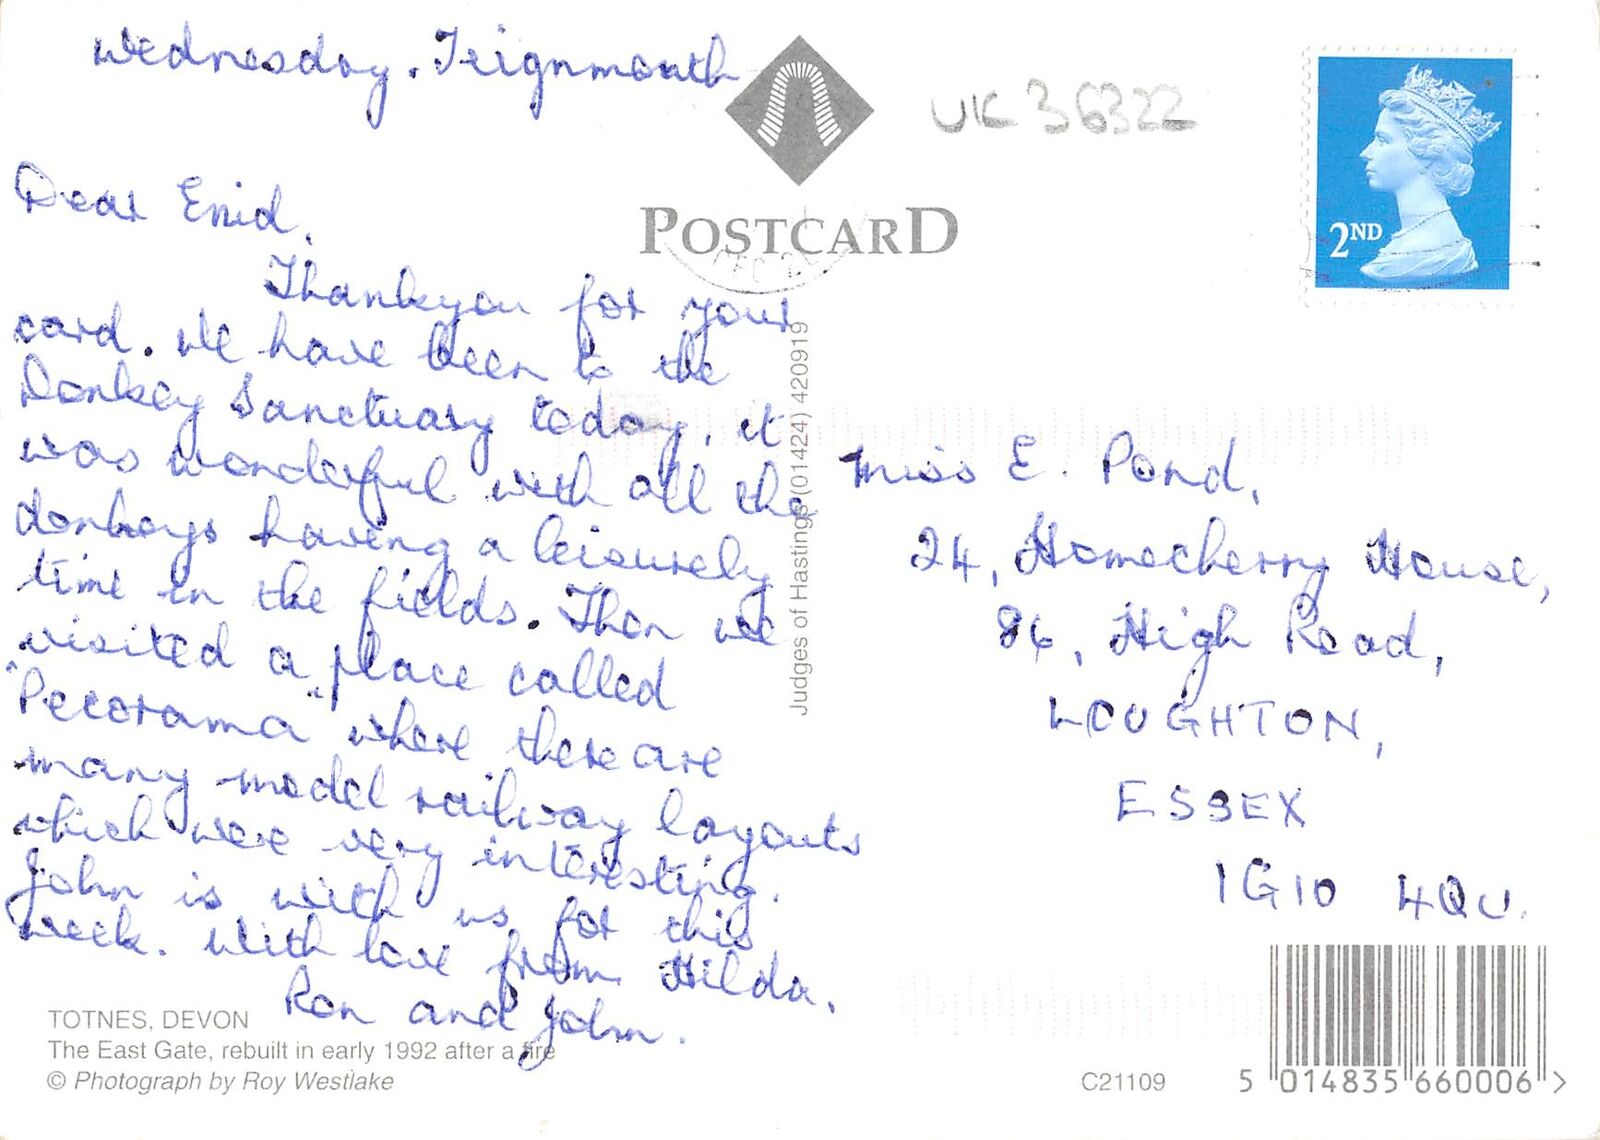 Wednesday. Teignmouth
Dear Enid,
Thankyou for your
card. We have been to the
Donkey Sanctuary today, it
was wonderful with all the
donkeys having a leisurely
time in the fields. Then we
visited a place called
"Pecorama" where there are
many model railway layouts
which were very interesting.
John is with us for this
week. With love from Hilda,
Ron and John.
TOTNES, DEVON
The East Gate, rebuilt in early 1992 after a fire
© Photograph by Roy Westlake
POSTCARD
Judges of Hastings (01424) 420919
UK 36322
2ND
Miss E. Pond,
24, Homecherry House,
86, High Road,
LOUGHTON,
ESSEX
IG10 4QU.
C21109
5 014835 660006 >